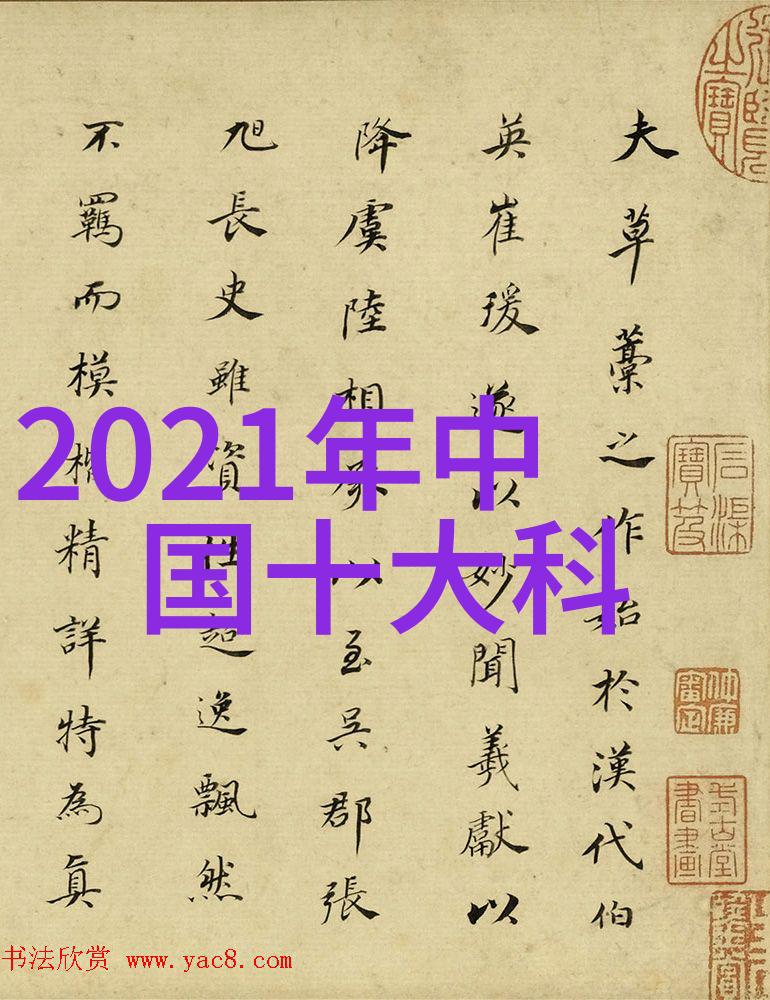 夫草藁之作始於漢代伯
英崔瑗遂以妙聞羲獻以
降虞陸相承以至吳郡張
旭長史雖資性超逸飄然
不羈而模楷精詳特為真
2021年中
国十大科
石渠寶笈
书法欣赏 www.yac8.com